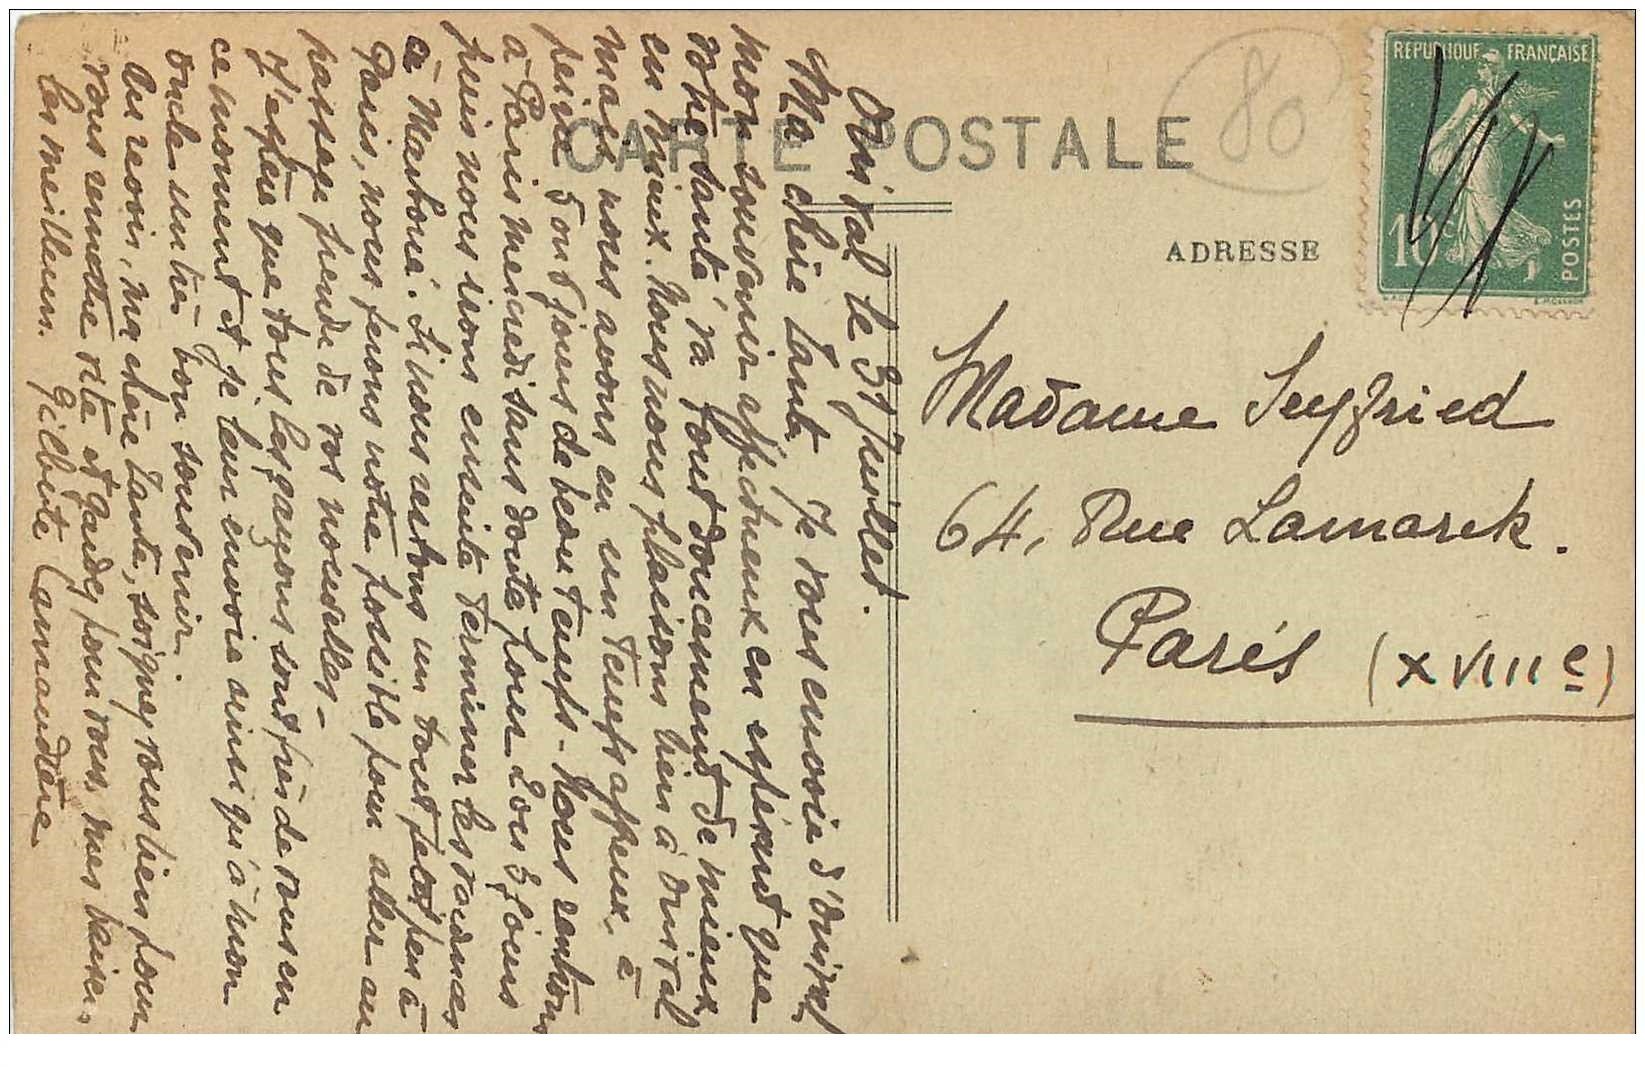 CARTE POSTALE
80
REPUBLIQUE FRANÇAISE
10c
POSTES
ADRESSE
Madame Seyfried
64, Rue Lamarck.
Paris (XVIIIe)
Onival le 31 Juillet.
Ma chère tante, Je vous envoie d'Onival
mon souvenir affectueux en espérant que
votre santé va tout doucement de mieux
en mieux. Nous nous plaisons bien à Onival
mais nous avons eu un temps affreux. à
peine 5 ou 6 jours de beau temps. Nous rentrons
à Paris mercredi sans doute pour 2 ou 3 jours
puis nous irons ensuite terminer les vacances
à Marboué. Si nous restons un tout petit peu à
Paris, nous ferons notre possible pour aller au
passage prendre de vos nouvelles -
J'espère que tous les garçons sont près de vous en
ce moment et je leur envoie ainsi qu'à mon
oncle un très bon souvenir.
Au revoir, ma chère tante, soignez vous bien pour
vous remettre vite et gardez pour vous mes baisers
les meilleurs. Gilberte Carmandière